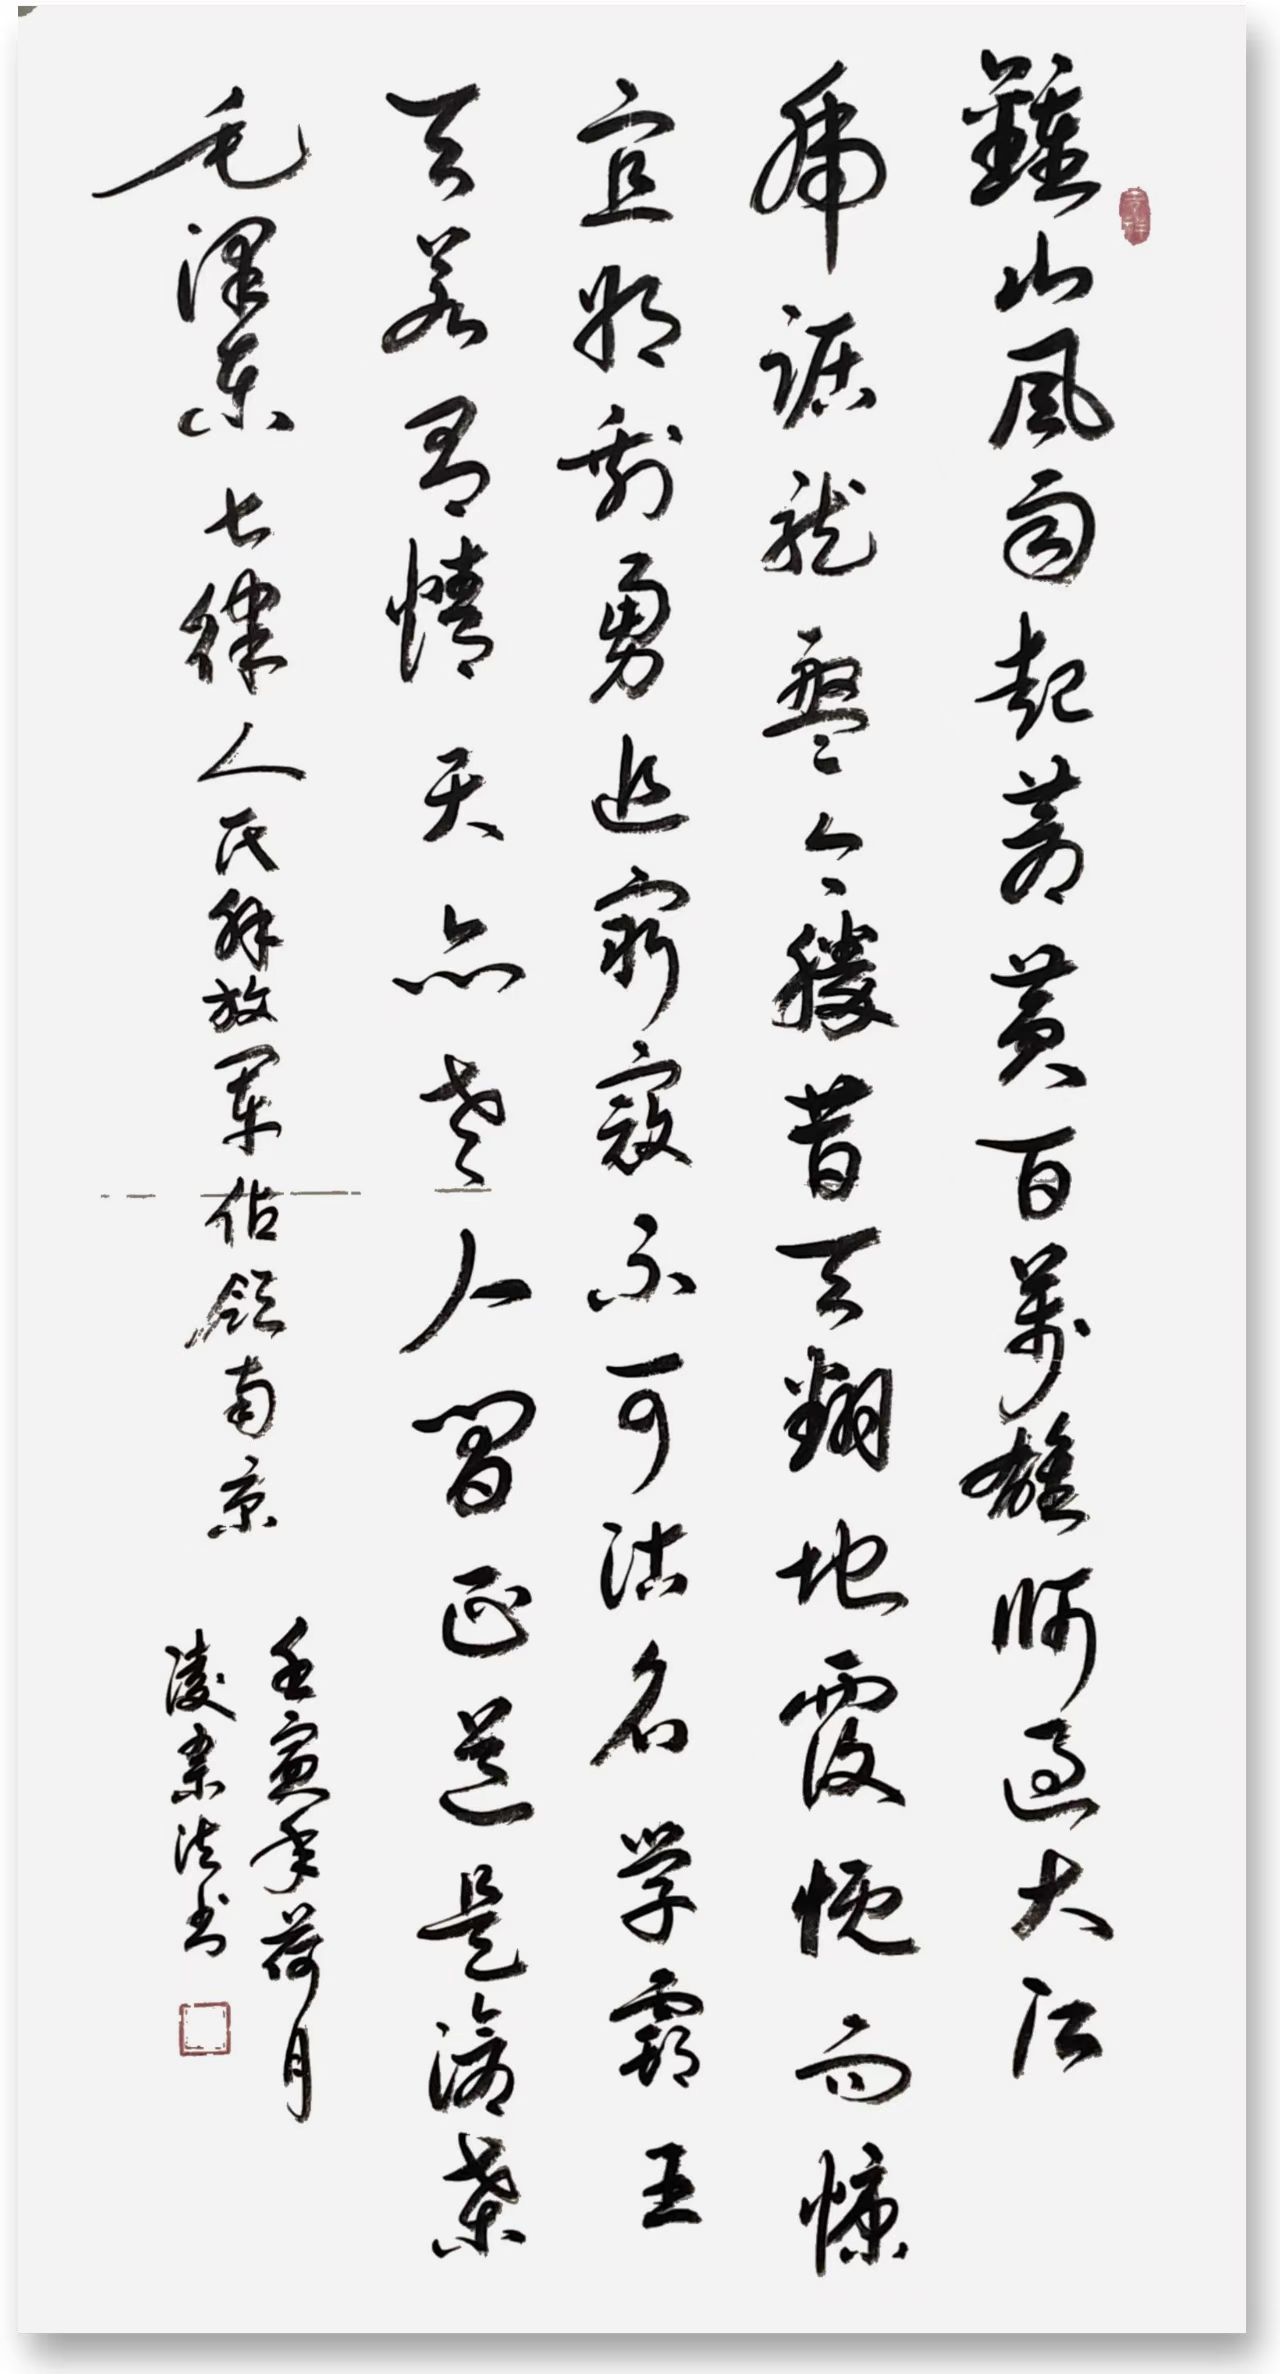 鐘山風雨起蒼黄百萬雄師過大江
虎踞龍盤今勝昔天翻地覆慨而慷
宜將剩勇追窮寇不可沽名学霸王
天若有情天亦老人間正道是滄桑
毛澤東七律人民解放軍佔領南京
壬寅年荷月
凌法书